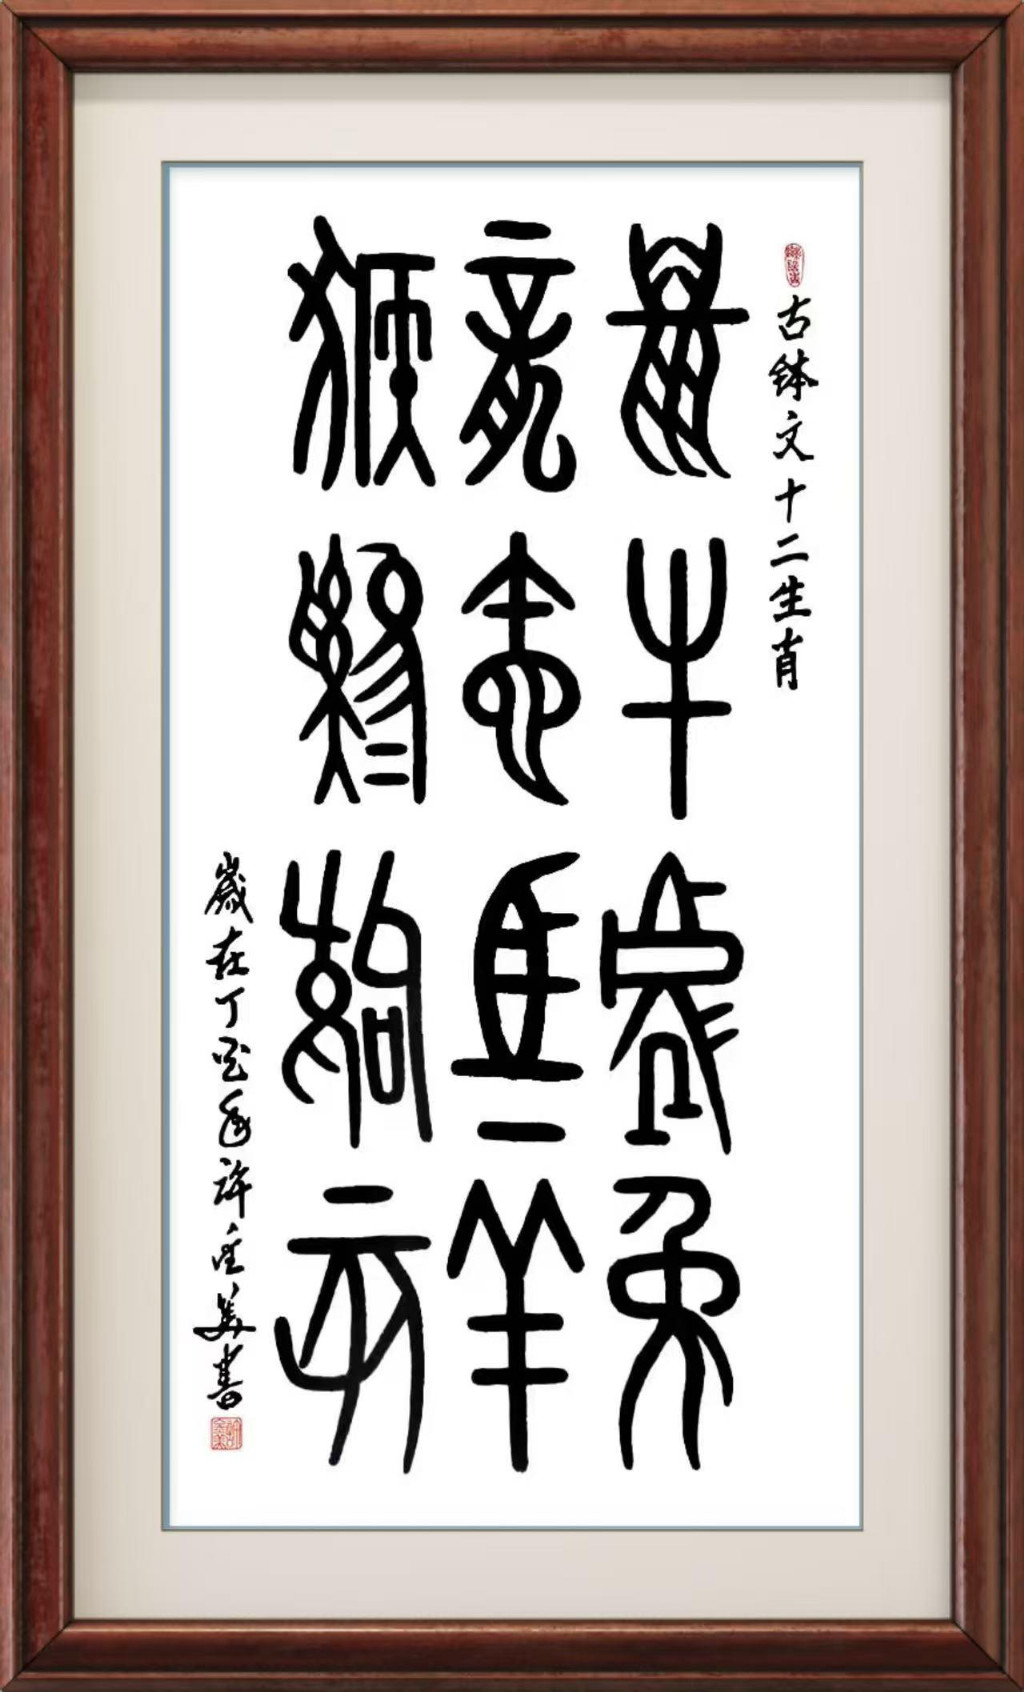 古鉢文十二生肖
鼠牛虎兔
龍蛇馬羊
猴雞狗豕
歲在丁酉年許金美書